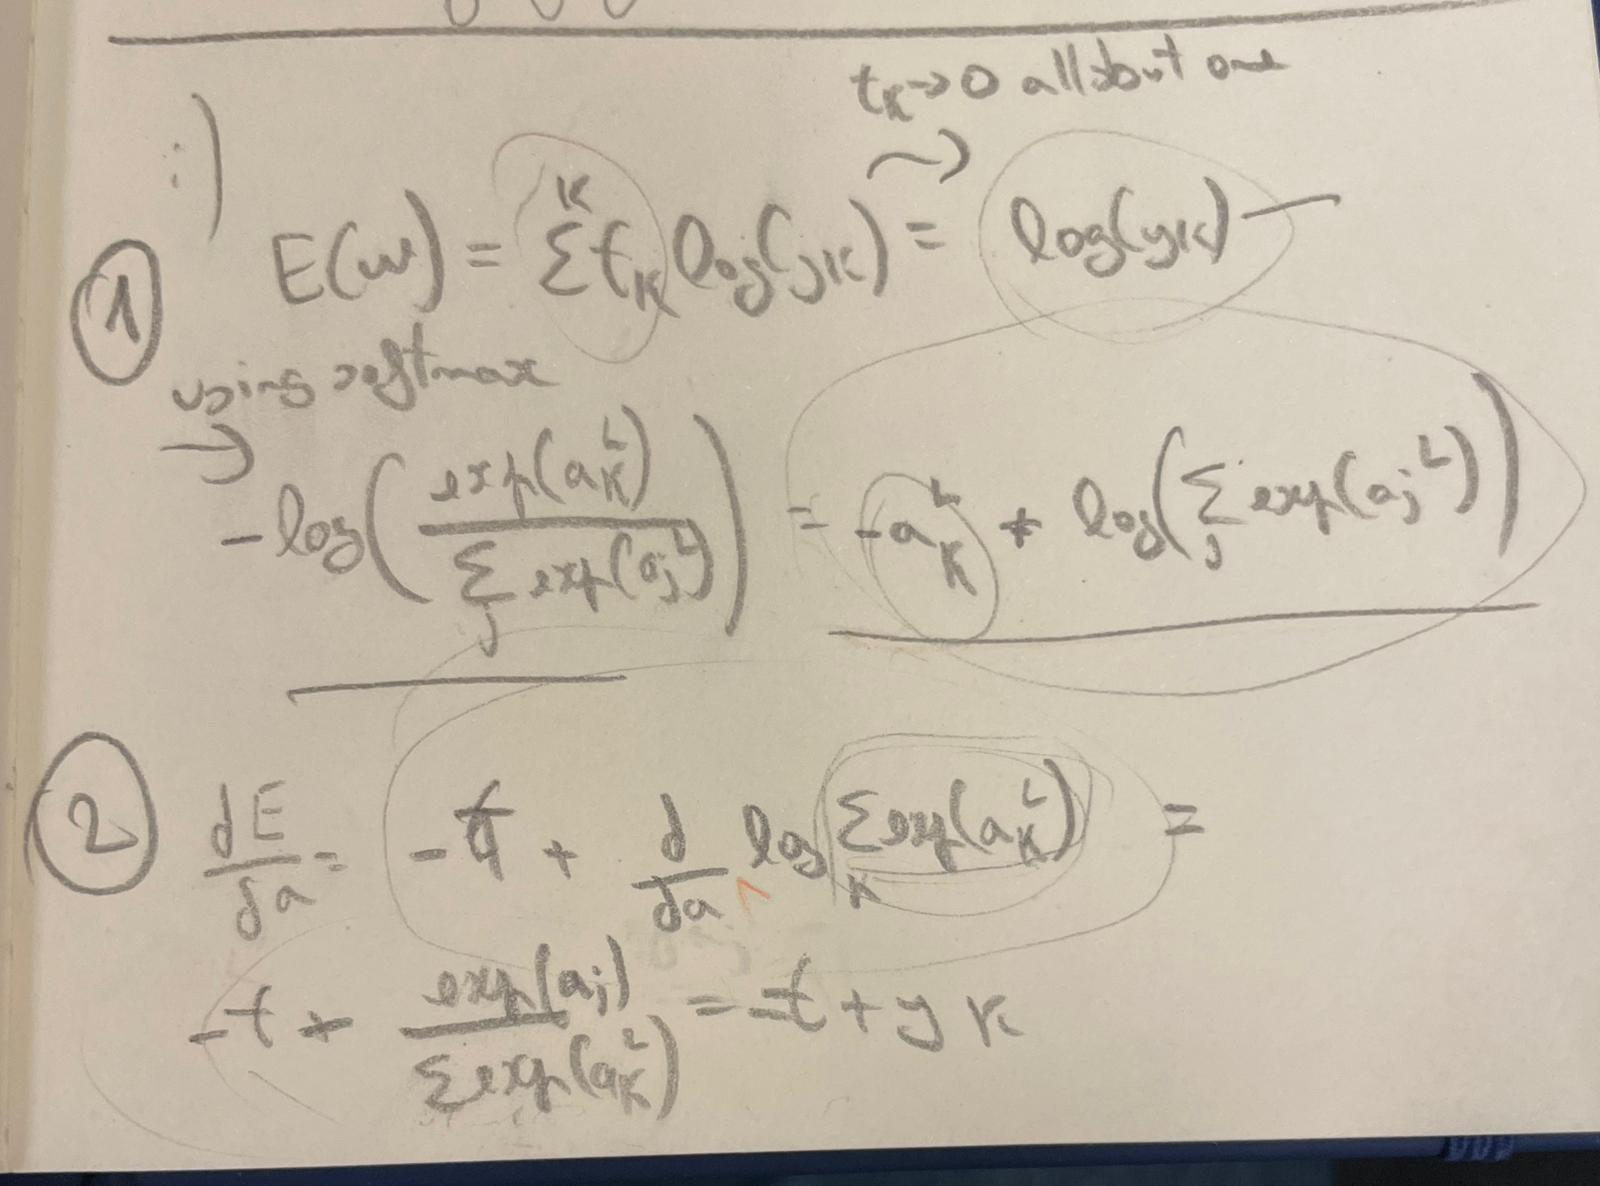 t_K → 0 all but one
:)
① E(w) = Σ^K t_K log(y_K) = log(y_K) —
using softmax
→ - log( exp(a_K^L) / Σ_j exp(a_j^L) ) = -a_K^L + log( Σ_j exp(a_j^L) )
② dE/da = - t + d/da log Σ_K exp(a_K^L) =
- t + exp(a_j) / Σ exp(a_K^L) = - t + y_K